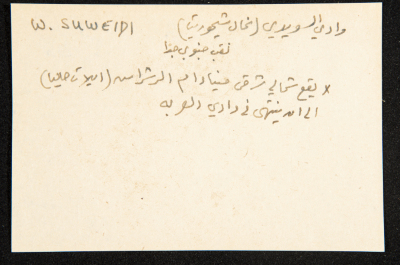 W. SUWEIDI
وادي السويدي (نحال شيحوريت)
نقب جنوبي جدا
x يقع شمالي شرقي ميناء ام الرشراش (ايلات حاليا)
الى ان ينتهي في وادي العربه